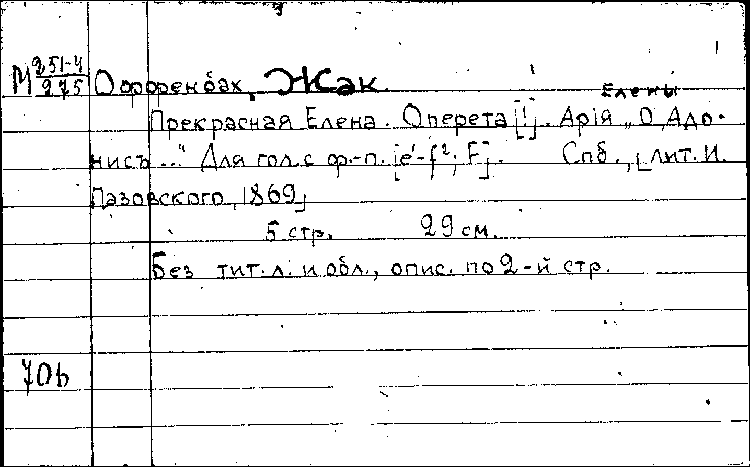 М 251-4/275 Оффенбах, Жак.
Елены
Прекрасная Елена. Оперета [!]. Арія „О, Адо-
нисъ ..." Для гол. с ф.-п. [e¹-f²; F]. Спб., [лит. И.
Пазовского, 1869]
5 стр. 29 см.
Без тит. л. и обл., опис. по 2-й стр.